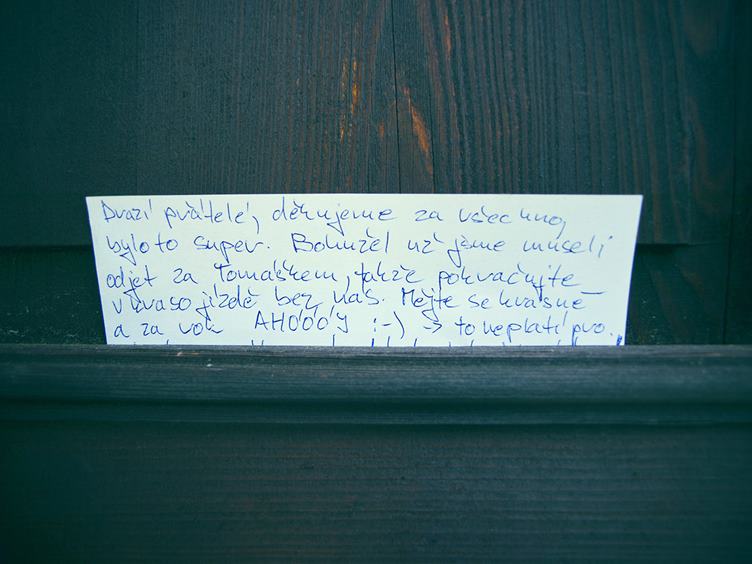 Drazí přátelé, děkujeme za všechno,
bylo to super. Bohužel už jsme museli
odjet za Tomáškem, takže pokračujte
v kvaso jízdě bez nás. Mějte se krásně
a za rok AHÓÓÓJ :-) → to neplatí pro